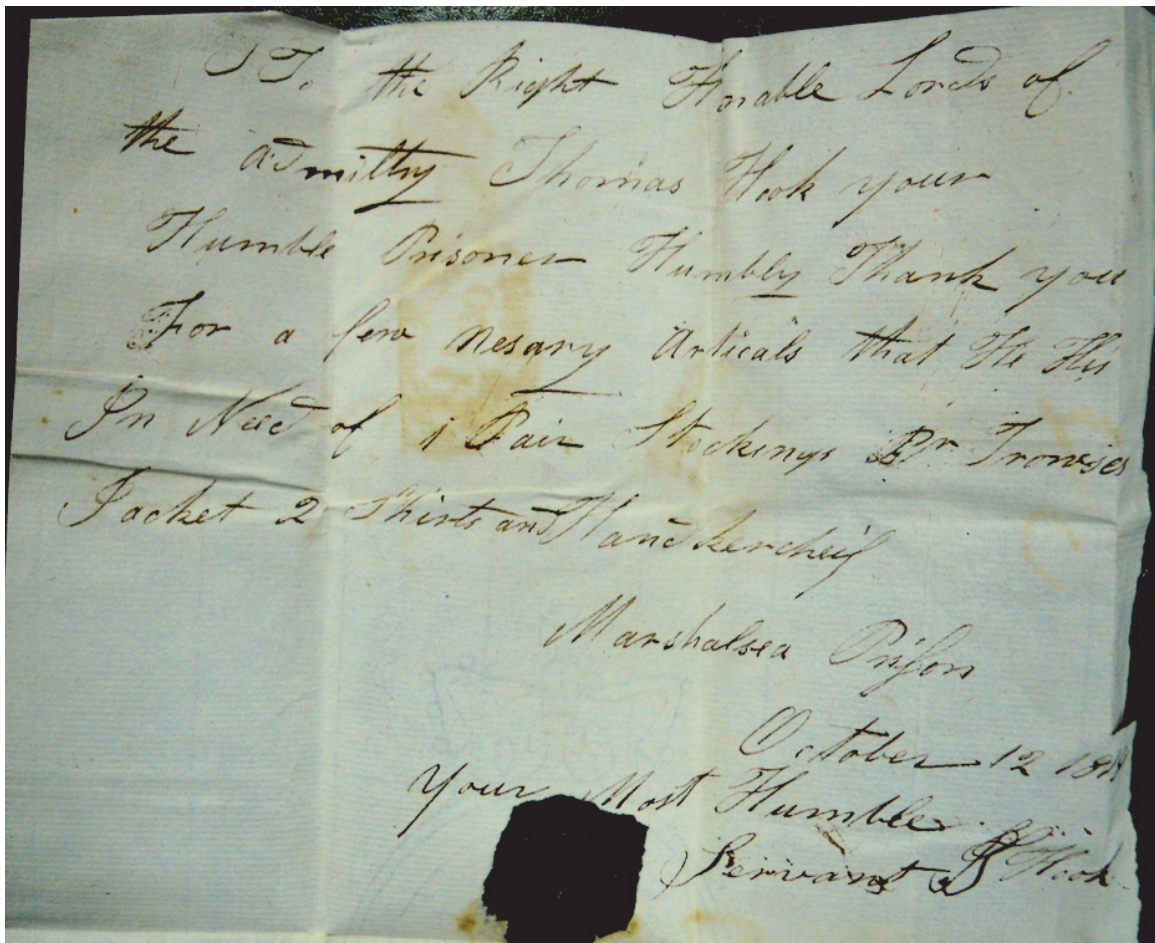 To the Right Honable Lords of
the admilty Thomas Hook your
Humble Prisoner Humbly Thank you
For a few nesary Articals that He His
In Need of 1 Pair Stockings Pr Trowses
Jacket 2 Shirts and Handkercheif
Marshalsea Prison
October 12
Your Most Humble
Servant Hook